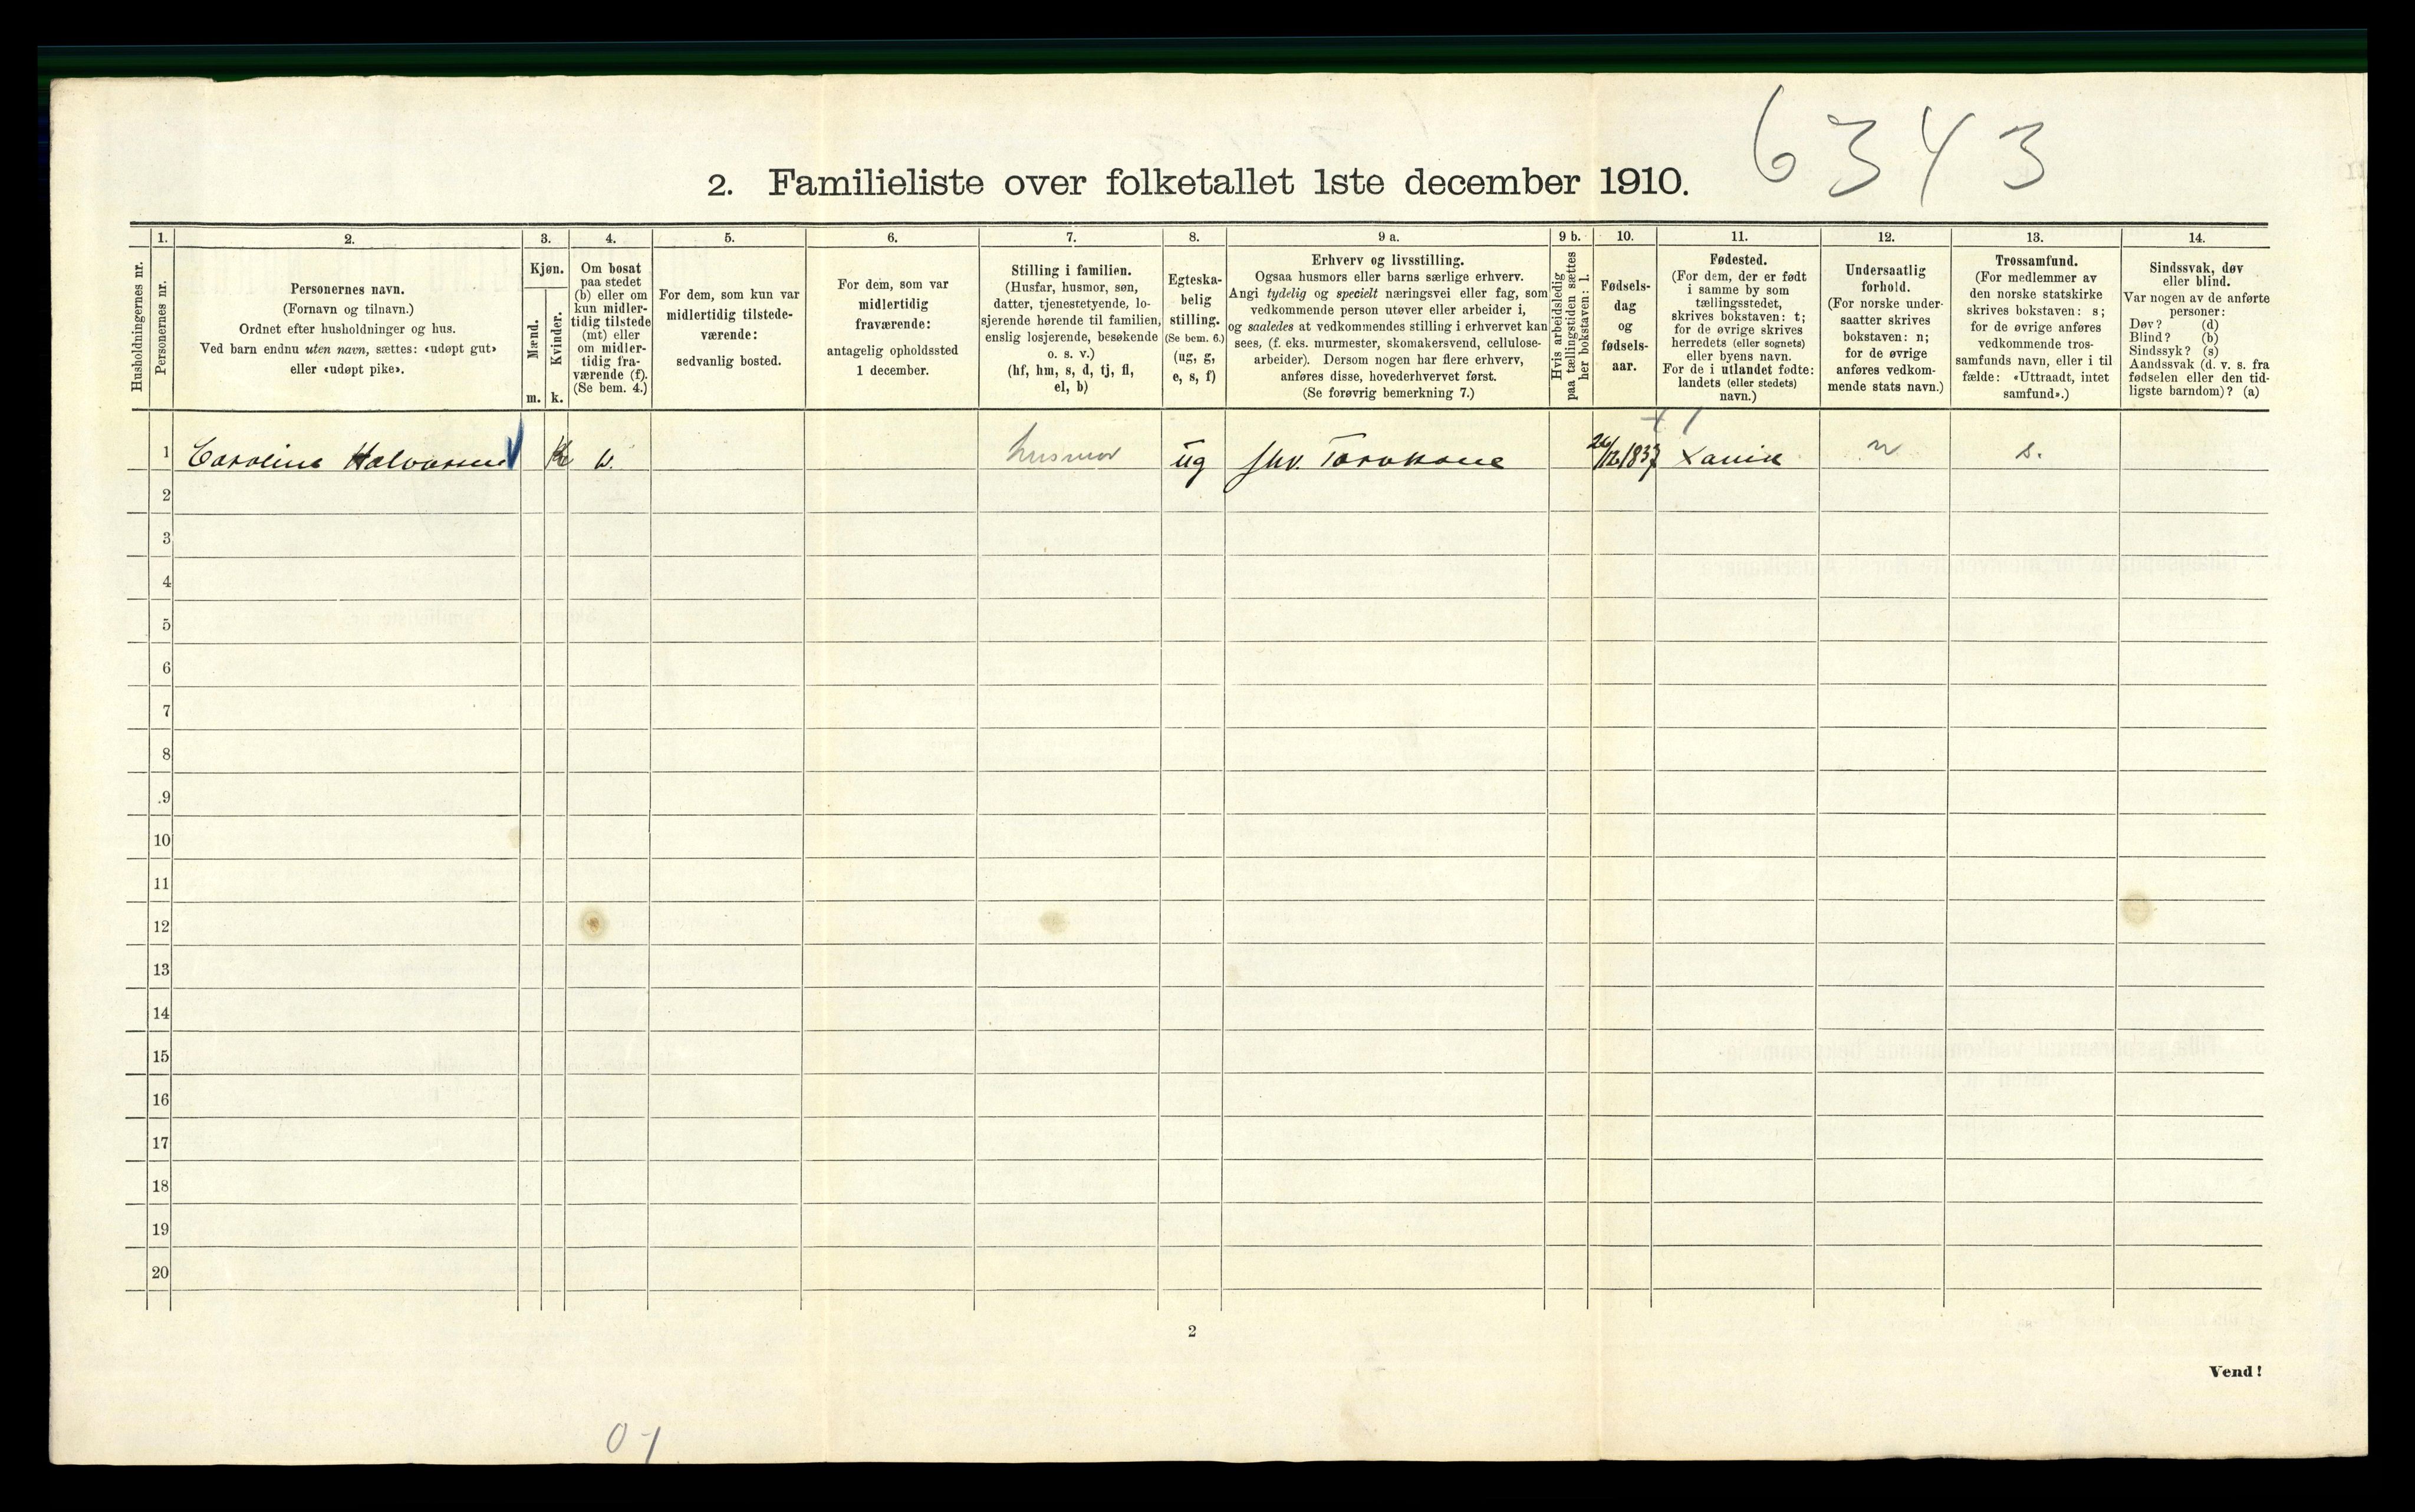 6343
2. Familieliste over folketallet 1ste december 1910.
Husholdningernes nr.
1.
Personernes nr.
2.
Personernes navn.
(Fornavn og tilnavn.)
Ordnet efter husholdninger og hus.
Ved barn endnu uten navn, sættes: «udøpt gut»
eller «udøpt pike».
3.
Kjøn.
Mænd.
Kvinder.
m. k.
4.
Om bosat
paa stedet
(b) eller om
kun midler-
tidig tilstede
(mt) eller
om midler-
tidig fra-
værende (f).
(Se bem. 4.)
5.
For dem, som kun var
midlertidig tilstede-
værende:
sedvanlig bosted.
6.
For dem, som var
midlertidig
fraværende:
antagelig opholdssted
1 december.
7.
Stilling i familien.
(Husfar, husmor, søn,
datter, tjenestetyende, lo-
sjerende hørende til familien,
enslig losjerende, besøkende
o. s. v.)
(hf, hm, s, d, tj, fl,
el, b)
8.
Egteska-
belig
stilling.
(Se bem. 6.)
(ug, g,
e, s, f)
9 a.
Erhverv og livsstilling.
Ogsaa husmors eller barns særlige erhverv.
Angi tydelig og specielt næringsvei eller fag, som
vedkommende person utøver eller arbeider i,
og saaledes at vedkommendes stilling i erhvervet kan
sees, (f. eks. murmester, skomakersvend, cellulose-
arbeider). Dersom nogen har flere erhverv,
anføres disse, hovederhvervet først.
(Se forøvrig bemerkning 7.)
9 b.
Hvis arbeidsledig
paa tællingstiden sættes
her bokstaven: l.
10.
Fødsels-
dag
og
fødsels-
aar.
11.
Fødested.
(For dem, der er født
i samme by som
tællingsstedet,
skrives bokstaven: t;
for de øvrige skrives
herredets (eller sognets)
eller byens navn.
For de i utlandet fødte:
landets (eller stedets)
navn.)
12.
Undersaatlig
forhold.
(For norske under-
saatter skrives
bokstaven: n;
for de øvrige
anføres vedkom-
mende stats navn.)
13.
Trossamfund.
(For medlemmer av
den norske statskirke
skrives bokstaven: s;
for de øvrige anføres
vedkommende tros-
samfunds navn, eller i til
fælde: «Uttraadt, intet
samfund».)
14.
Sindssvak, døv
eller blind.
Var nogen av de anførte
personer:
Døv? (d)
Blind? (b)
Sindssyk? (s)
Aandssvak (d. v. s. fra
fødselen eller den tid-
ligste barndom)? (a)
1 Caroline Halvorsen k b. husmor ug fhv. Torvkone 26/12 1837 n s.
2
3
4
5
6
7
8
9
10
11
12
13
14
15
16
17
18
19
20
2
Vend!